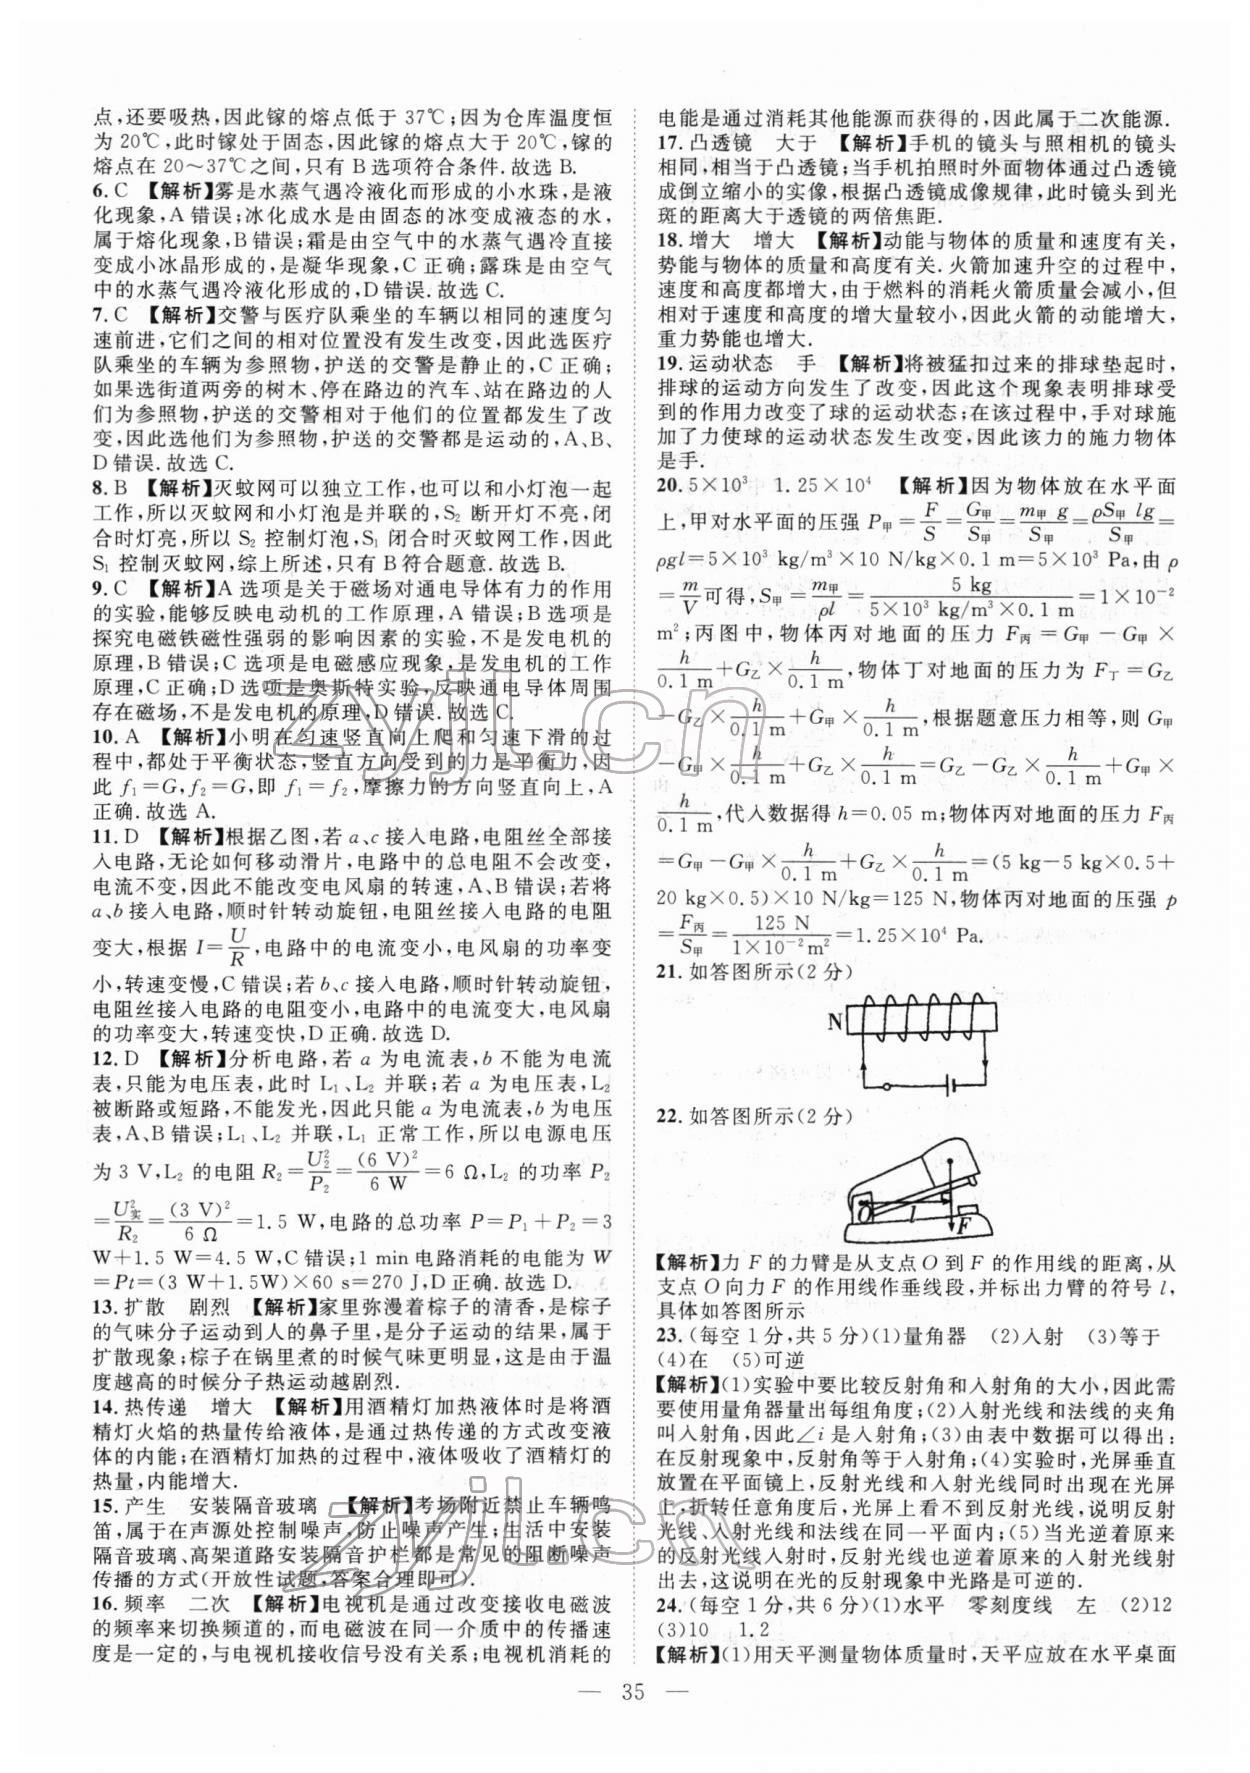 点,还要吸热,因此镓的熔点低于 37℃;因为仓库温度恒
为 20℃,此时镓处于固态,因此镓的熔点大于 20℃,镓的
熔点在 20～37℃之间,只有 B 选项符合条件. 故选 B.
6. C 【解析】雾是水蒸气遇冷液化而形成的小水珠,是液
化现象,A 错误;冰化成水是由固态的冰变成液态的水,
属于熔化现象,B 错误;霜是由空气中的水蒸气遇冷直接
变成小冰晶形成的,是凝华现象,C 正确;露珠是由空气
中的水蒸气遇冷液化形成的,D 错误. 故选 C.
7. C 【解析】交警与医疗队乘坐的车辆以相同的速度匀
速前进,它们之间的相对位置没有发生改变,因此选医疗
队乘坐的车辆为参照物,护送的交警是静止的,C 正确;
如果选街道两旁的树木、停在路边的汽车、站在路边的人
们为参照物,护送的交警相对于他们的位置都发生了改
变,因此选他们为参照物,护送的交警都是运动的,A、B、
D 错误. 故选 C.
8. B 【解析】灭蚊网可以独立工作,也可以和小灯泡一起
工作,所以灭蚊网和小灯泡是并联的,S₂ 断开灯不亮,闭
合时灯亮,所以 S₂ 控制灯泡,S₁ 闭合时灭蚊网工作,因此
S₁ 控制灭蚊网,综上所述,只有 B 符合题意. 故选 B.
9. C 【解析】A 选项是关于磁场对通电导体有力的作用
的实验,能够反映电动机的工作原理,A 错误;B 选项是
探究电磁铁磁性强弱的影响因素的实验,不是发电机的
原理,B 错误;C 选项是电磁感应现象,是发电机的工作
原理,C 正确;D 选项是奥斯特实验,反映通电导体周围
存在磁场,不是发电机的原理,D 错误. 故选 C.
10. A 【解析】小明在匀速竖直向上爬和匀速下滑的过
程中,都处于平衡状态,竖直方向受到的力是平衡力,因
此 f₁=G,f₂=G,即 f₁=f₂,摩擦力的方向竖直向上,A
正确. 故选 A.
11. D 【解析】根据乙图,若 a、c 接入电路,电阻丝全部接
入电路,无论如何移动滑片,电路中的总电阻不会改变,
电流不变,因此不能改变电风扇的转速,A、B 错误;若将
a、b 接入电路,顺时针转动旋钮,电阻丝接入电路的电阻
变大,根据 I=U/R,电路中的电流变小,电风扇的功率变
小,转速变慢,C 错误;若 b、c 接入电路,顺时针转动旋钮,
电阻丝接入电路的电阻变小,电路中的电流变大,电风扇
的功率变大,转速变快,D 正确. 故选 D.
12. D 【解析】分析电路,若 a 为电流表,b 不能为电流
表,只能为电压表,此时 L₁、L₂ 并联;若 a 为电压表,L₂
被断路或短路,不能发光,因此只能 a 为电流表,b 为电压
表,A、B 错误;L₁、L₂ 并联,L₁ 正常工作,所以电源电压
为 3 V,L₂ 的电阻 R₂=U₂²/P₂=(6 V)²/6 W=6 Ω,L₂ 的功率 P₂
=U实²/R₂=(3 V)²/6 Ω=1.5 W,电路的总功率 P=P₁+P₂=3
W+1.5 W=4.5 W,C 错误;1 min 电路消耗的电能为 W
=Pt=(3 W+1.5W)×60 s=270 J,D 正确. 故选 D.
13. 扩散 剧烈 【解析】家里弥漫着粽子的清香,是粽子
的气味分子运动到人的鼻子里,是分子运动的结果,属于
扩散现象;粽子在锅里煮的时候气味更明显,这是由于温
度越高的时候分子热运动越剧烈.
14. 热传递 增大 【解析】用酒精灯加热液体时是将酒
精灯火焰的热量传给液体,是通过热传递的方式改变液
体的内能;在酒精灯加热的过程中,液体吸收了酒精灯的
热量,内能增大.
15. 产生 安装隔音玻璃 【解析】考场附近禁止车辆鸣
笛,属于在声源处控制噪声,防止噪声产生;生活中安装
隔音玻璃、高架道路安装隔音护栏都是常见的阻断噪声
传播的方式(开放性试题,答案合理即可).
16. 频率 二次 【解析】电视机是通过改变接收电磁波
的频率来切换频道的,而电磁波在同一介质中的传播速
度是一定的,与电视机接收信号没有关系;电视机消耗的
电能是通过消耗其他能源而获得的,因此属于二次能源.
17. 凸透镜 大于 【解析】手机的镜头与照相机的镜头
相同,相当于凸透镜;当手机拍照时外面物体通过凸透镜
成倒立缩小的实像,根据凸透镜成像规律,此时镜头到光
斑的距离大于透镜的两倍焦距.
18. 增大 增大 【解析】动能与物体的质量和速度有关,
势能与物体的质量和高度有关. 火箭加速升空的过程中,
速度和高度都增大,由于燃料的消耗火箭质量会减小,但
相对于速度和高度的增大量较小,因此火箭的动能增大,
重力势能也增大.
19. 运动状态 手 【解析】将被猛扣过来的排球垫起时,
排球的运动方向发生了改变,因此这个现象表明排球受
到的作用力改变了球的运动状态;在该过程中,手对球施
加了力使球的运动状态发生改变,因此该力的施力物体
是手.
20. 5×10³ 1.25×10⁴ 【解析】因为物体放在水平面
上,甲对水平面的压强 P甲=F/S=G甲/S甲=m甲 g/S甲=ρS甲 lg/S甲=
ρgl=5×10³ kg/m³×10 N/kg×0.1 m=5×10³ Pa,由 ρ
=m/V可得,S甲=m甲/ρl=5 kg/(5×10³ kg/m³×0.1 m)=1×10⁻²
m²;丙图中,物体丙对地面的压力 F丙=G甲-G甲×
h/0.1 m+G乙×h/0.1 m,物体丁对地面的压力为 F丁=G乙
-G乙×h/0.1 m+G甲×h/0.1 m,根据题意压力相等,则 G甲
-G甲×h/0.1 m+G乙×h/0.1 m=G乙-G乙×h/0.1 m+G甲×
h/0.1 m,代入数据得 h=0.05 m;物体丙对地面的压力 F丙
=G甲-G甲×h/0.1 m+G乙×h/0.1 m=(5 kg-5 kg×0.5+
20 kg×0.5)×10 N/kg=125 N,物体丙对地面的压强 p
=F丙/S甲=125 N/1×10⁻² m²=1.25×10⁴ Pa.
21. 如答图所示(2 分)
N
22. 如答图所示(2 分)
O l F
【解析】力 F 的力臂是从支点 O 到 F 的作用线的距离,从
支点 O 向力 F 的作用线作垂线段,并标出力臂的符号 l,
具体如答图所示
23. (每空 1 分,共 5 分)(1)量角器 (2)入射 (3)等于
(4)在 (5)可逆
【解析】(1)实验中要比较反射角和入射角的大小,因此需
要使用量角器量出每组角度;(2)入射光线和法线的夹角
叫入射角,因此∠i 是入射角;(3)由表中数据可以得出:
在反射现象中,反射角等于入射角;(4)实验时,光屏垂直
放置在平面镜上,反射光线和入射光线同时出现在光屏
上,折转任意角度后,光屏上看不到反射光线,说明反射
光线、入射光线和法线在同一平面内;(5)当光逆着原来
的反射光线入射时,反射光线也逆着原来的入射光线射
出去,这说明在光的反射现象中光路是可逆的.
24. (每空 1 分,共 6 分)(1)水平 零刻度线 左 (2)12
(3)10 1.2
【解析】(1)用天平测量物体质量时,天平应放在水平桌面
— 35 —
zyjl.cn
zyjl.cn